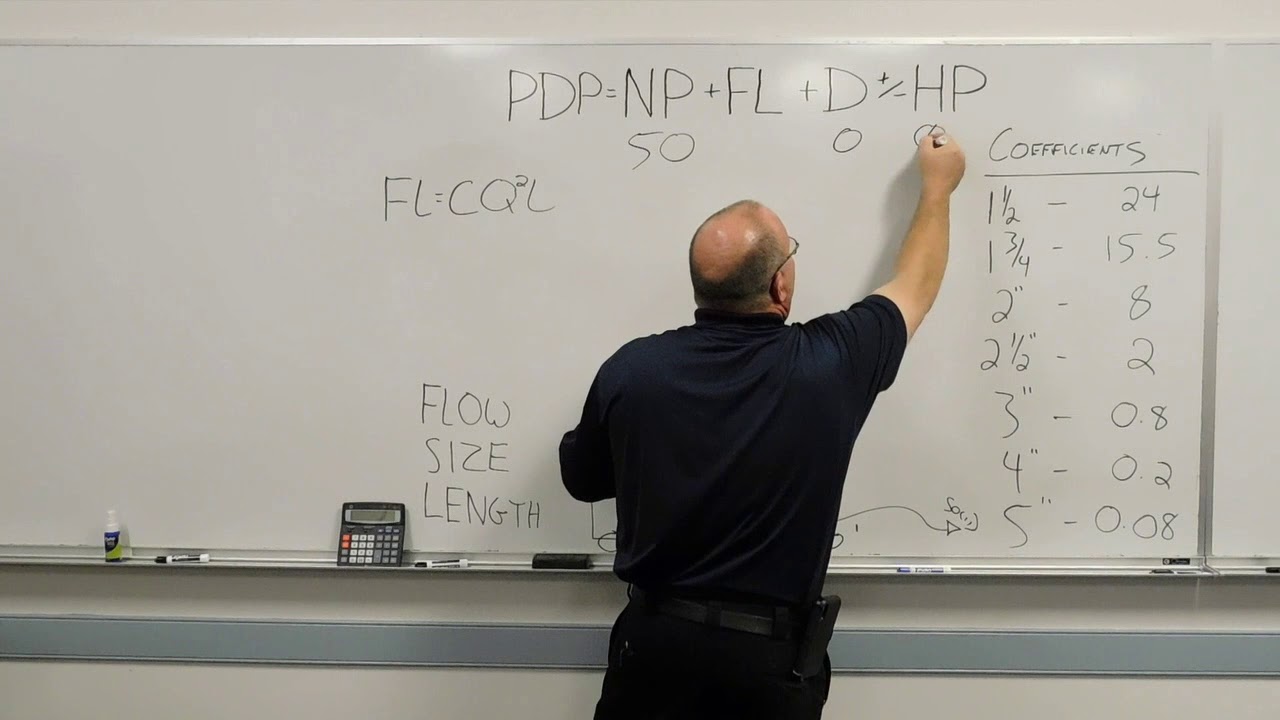 PDP=NP+FL+D+/-HP
50 0 0
FL=CQ²L
COEFFICIENTS
1½ - 24
1¾ - 15.5
2" - 8
2½" - 2
3" - 0.8
4" - 0.2
5" - 0.08
FLOW
SIZE
LENGTH